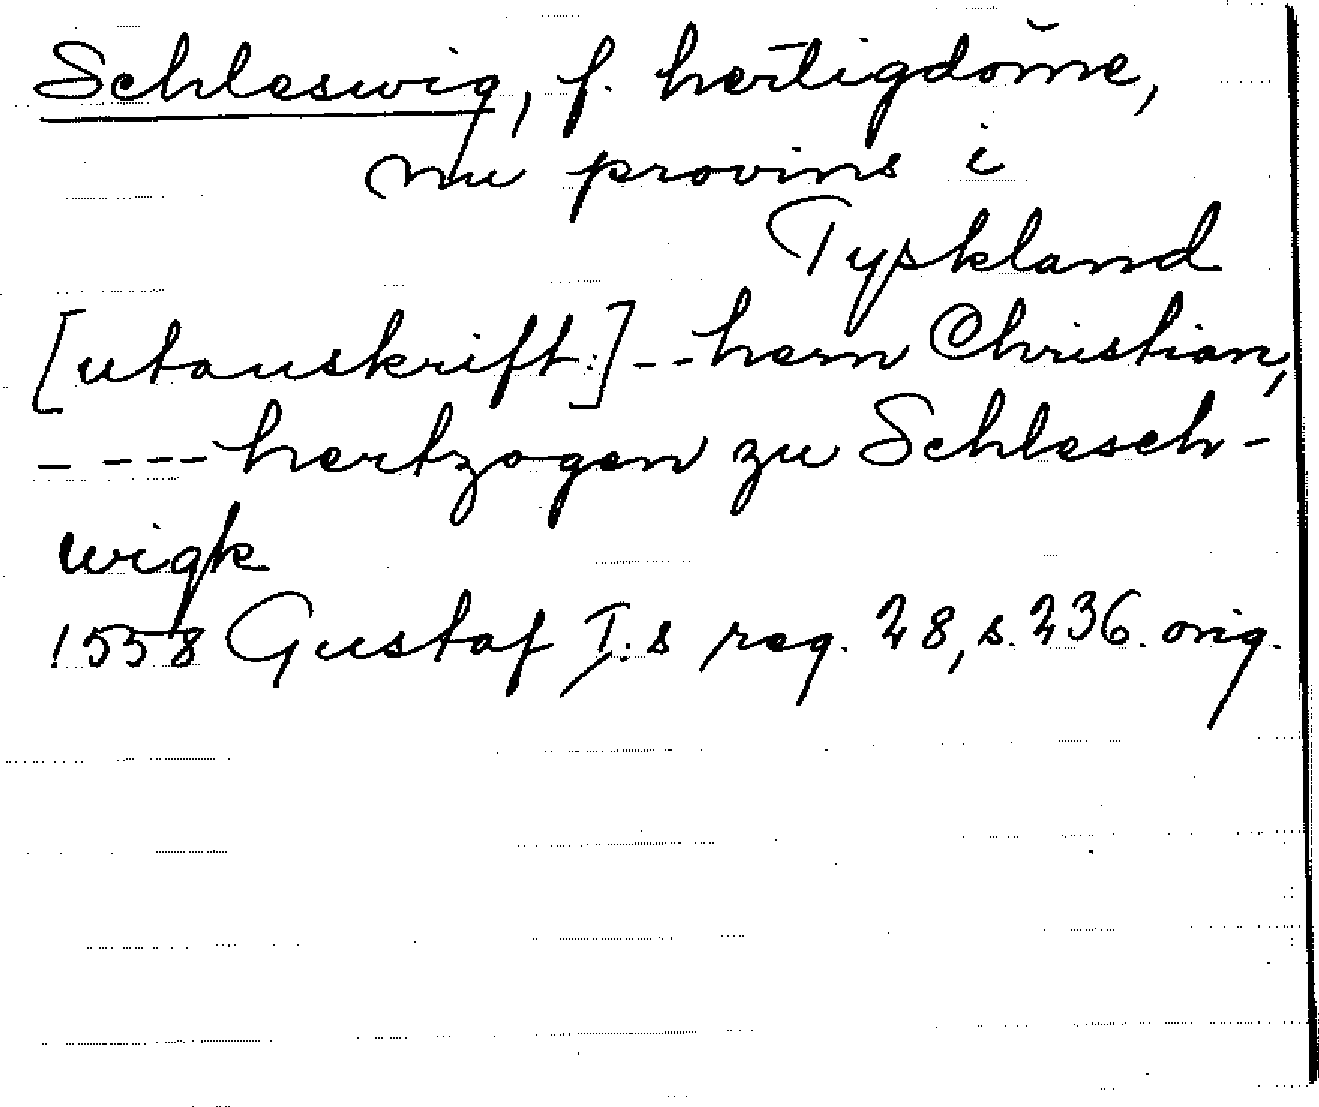 Schleswig, f. hertigdöme,
nu provins i
Tyskland
[utanskrift:] -- hern Christian,
- --- hertzogen zu Schlesch-
wigk
1558 Gustaf I:s reg. 28, s. 236. orig.